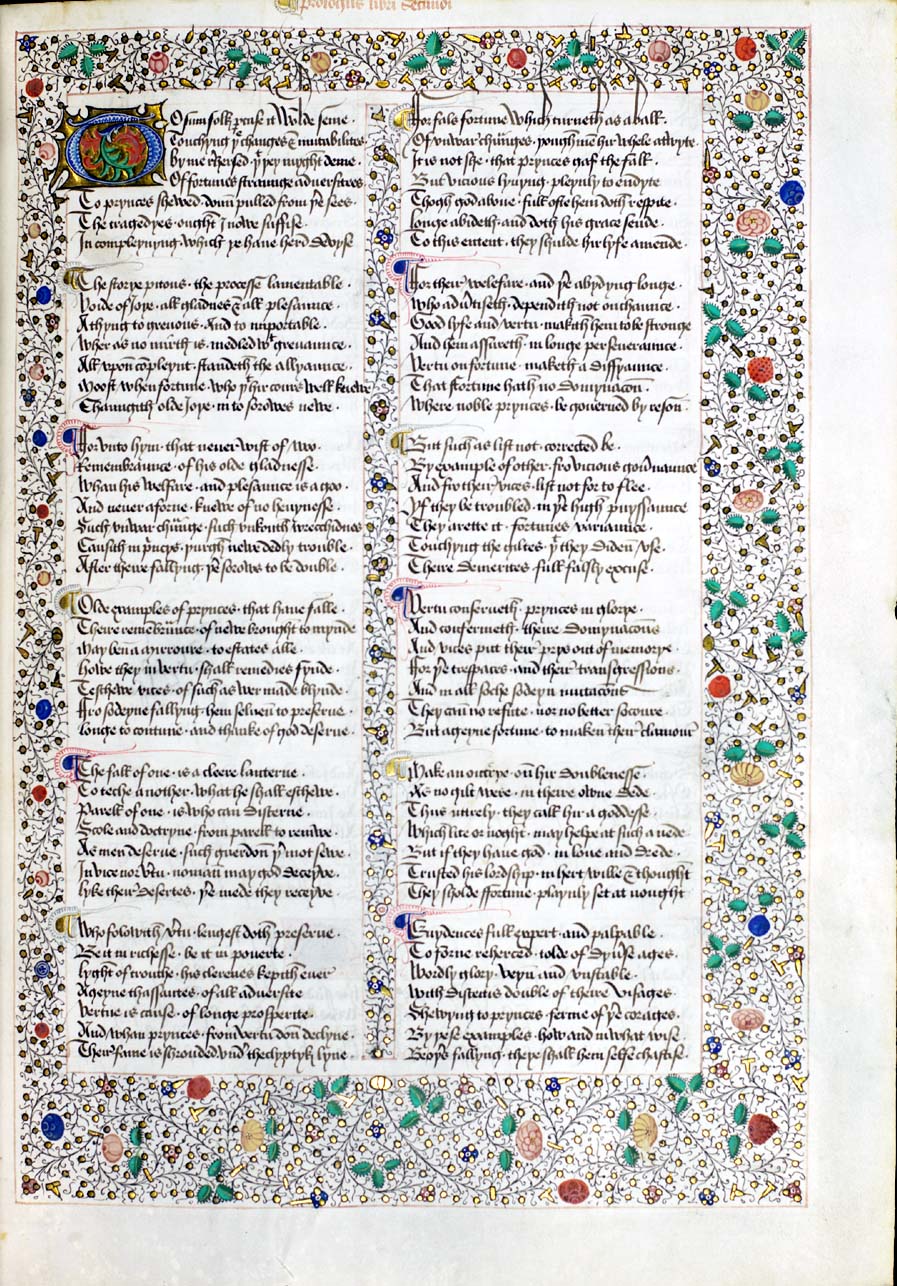 Prologus libri Secundi
TO sum folk perase it wolde seme ·
Touchyng þe chaunges & mutabilites
By me rehersed · þt þey myght deme ·
Of fortunes straunge adversitees
To prynces shewed · doun pulled from þe sees ·
The tragedyes · ought I nowe suffise ·
In compleynyng · which ye have herd devyse
The storye pitous · the processe lamentable ·
Voide of Joye · all gladnes & all plesaunce ·
A thyng to grevous · And to importable ·
Wher as no mirth is · medled wt grevaunce ·
All vpon compleynt · standeth the allyaunce ·
Moost when fortune · who þt hir cours well knewe
Chaungith olde Joye · in to sorowes newe ·
For vnto hym · that never wist of wo ·
Remembraunce · of his olde gladnesse ·
Whan his welfare · and plesaunce is agoo ·
And never aforne · knewe of no hevynesse ·
Such vnwar chaunge · such vnkouth wrecchidnes
Causith in prynces · þurgh newe dedly trouble ·
After theire fallyng · þe sorows to be double ·
Olde examples of prynces · that have falle ·
Theire remembraunce · of newe brought to mynde
May ben a mirroure · to estates alle ·
Howe they in vertu · shall remedies fynde ·
Teschewe vices · of such as wer made blynde ·
Fro sodeyne fallyng · hem selven to preserve ·
Longe to contune · and thanke of god deserve ·
The fall of one · is a cleere lanterne ·
To teche another · what he shall eschewe ·
Parell of one · is who can discerne ·
Scole and doctryne · from parell to remwe ·
As men deserve · such guerdon þer mot sewe ·
In vice nor vertu · no man may god deceyve ·
Lyke their desertes · þe mede they receyve ·
Who folowith vertu · lengest doth preserve ·
Be it in richesse · be it in poverte ·
Lyght of trouthe · his clerenes kepith ever
Ageyne thassautes · of all adversite
Vertue is cause · of longe prosperite ·
And whan prynces · from vertu doun declyne ·
Their fame is shrouded vndir thecliptyk lyne ·
For fals fortune which turneth as a ball ·
Of vnwar chaunges · þough men hir whele atwyte
It is not she · that prynces gaf the fall ·
But vicious lyvyng · pleynly to endyte
Thogh god above · full ofte hem doth respite ·
Longe abideth · and doth his grace sende ·
To this entent · they shulde hir lyfe amende ·
For their welefare · and þer abydyng longe ·
Who advertiseth · dependith not on chaunce ·
Good lyfe and vertu · makith hem to be stronge
And hem assureth · in longe perseveraunce ·
Vertu on fortune · maketh a diffyaunce ·
That fortune hath no domynacion ·
Where noble prynces · be governed by reson ·
But such as list not · corrected be ·
By example of other · fro vicious governaunce
And fro their vices · list not for to flee ·
Yf they be troubled · in þer high puyssaunce
They arette it · fortunes variaunce ·
Touchyng the giltes · þt they diden vse ·
Theire demerites · full falsly excuse ·
Vertu conserveth · prynces in glorye ·
And confermeth · theire domynacions
And vices put their prys out of memorye ·
For þer trespaces · and their transgressions ·
And in all soche sodeyn mutacions
They can no refute · nor no better socoure ·
But ageyne fortune · to maken their clamour
Make an outcrye · on hir doublenesse ·
As no gilt were · in theire owne dede ·
Thus vntrely · they call hir a goddesse ·
Which lite or noght · may helpe at such a nede ·
But if they have god · in love and drede ·
Trusted his lordship · in hert wille & thought
They sholde fortune · playnly set at nought
Evydences full expert · and palpable ·
To forne reherced · tolde of dyverse ages ·
Wordly glory · veyn and vnstable ·
With disceitis double of theire visages ·
Shewyng to prynces · ferme of þer corages ·
By þese examples · how and in what wise
By oþer fallyng · they shall hem selfe chastise ·